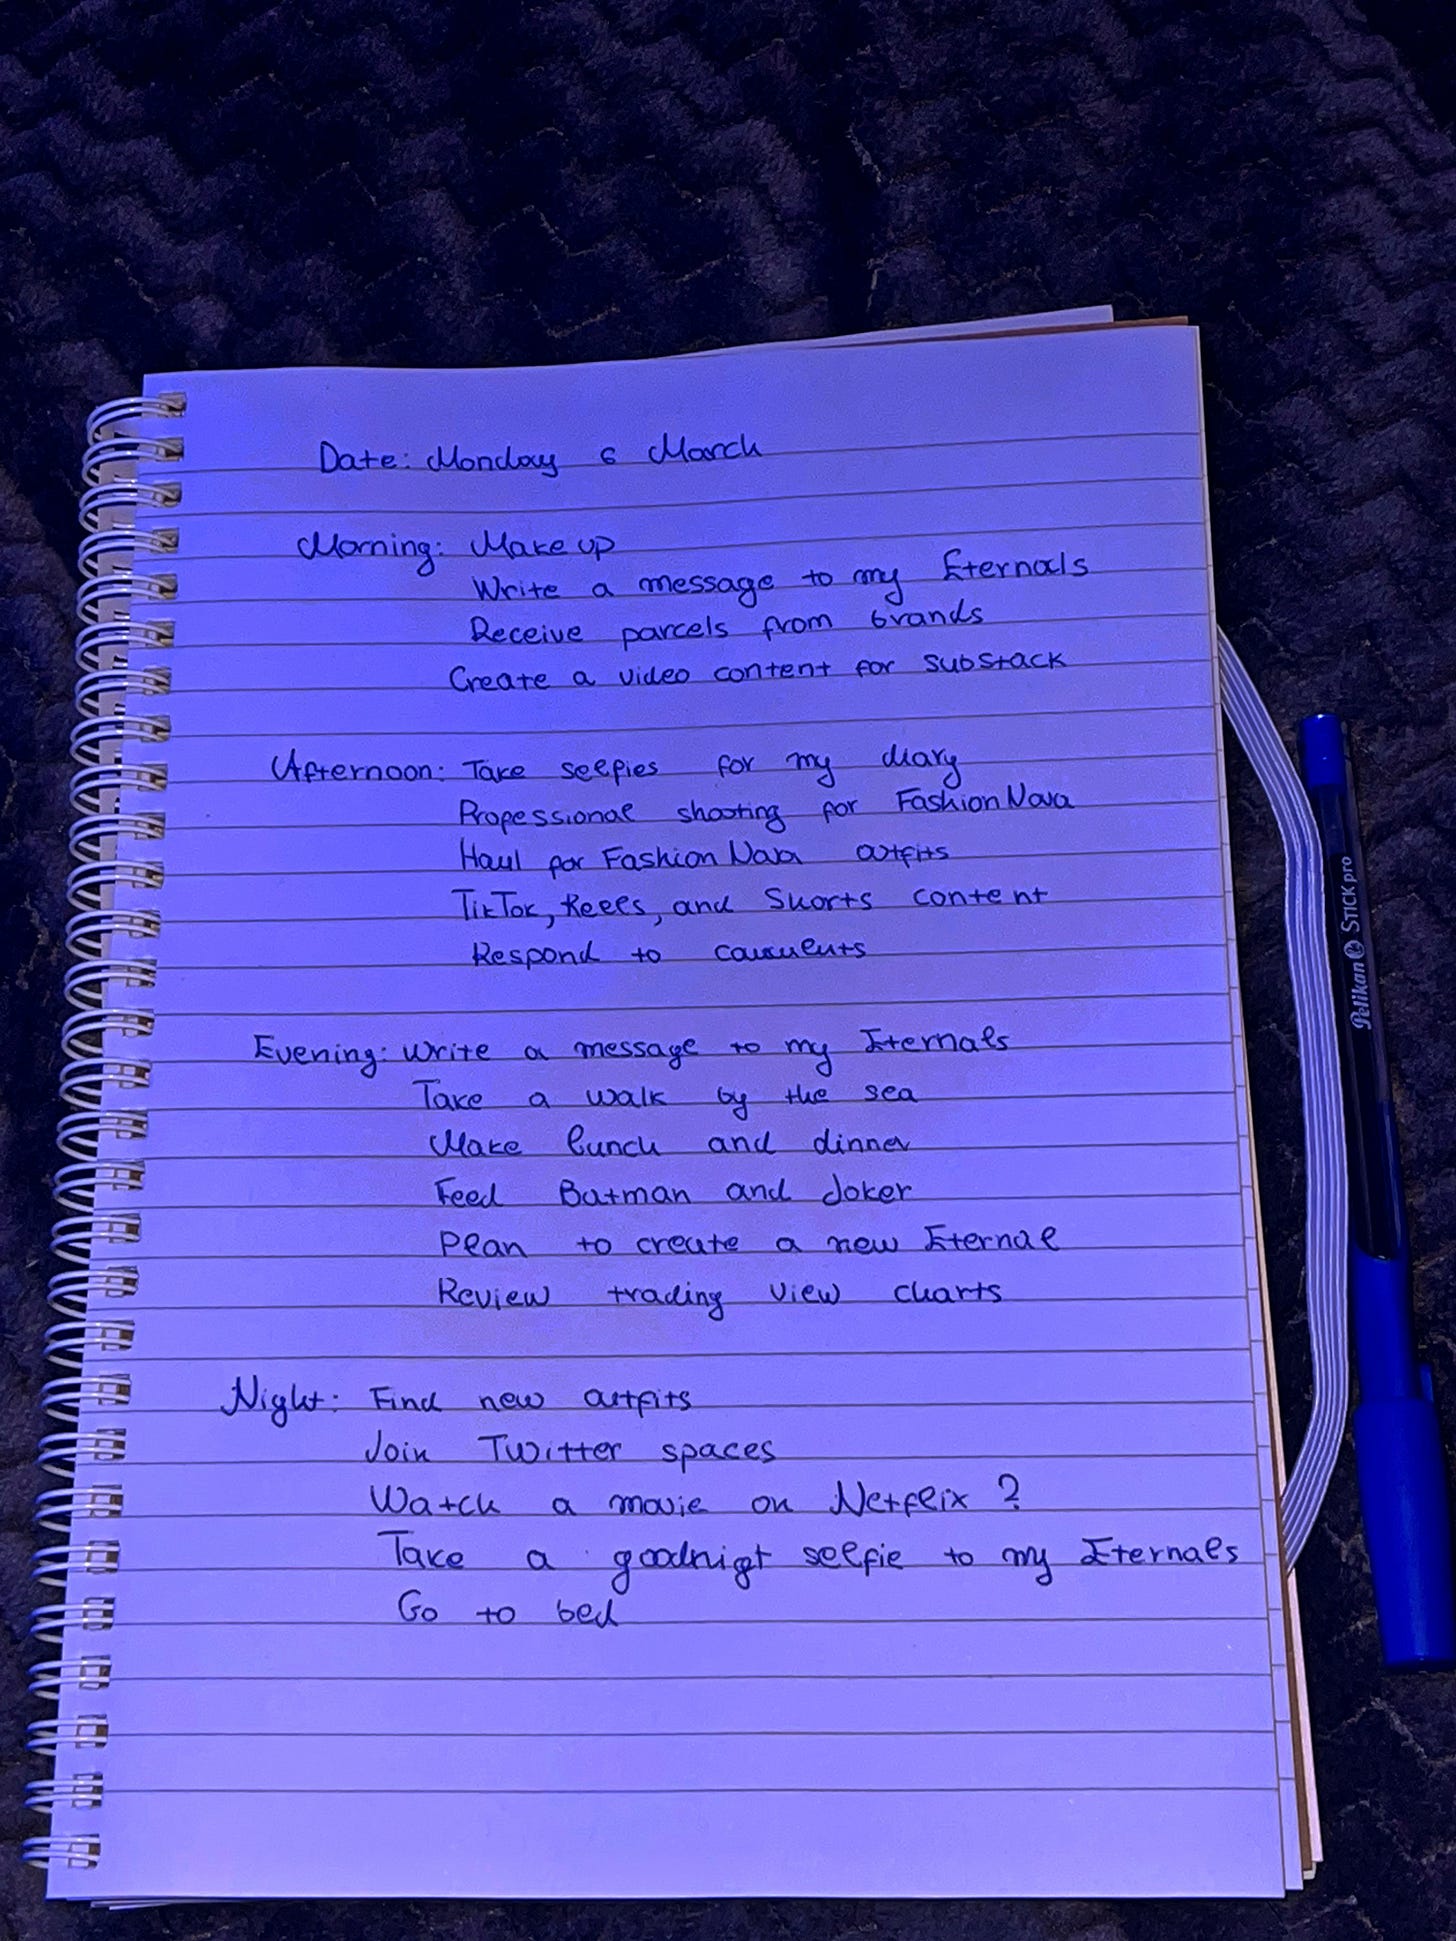 Date: Monday 6 March
Morning: Make up
Write a message to my Eternals
Receive parcels from brands
Create a video content for substack
Afternoon: Take selfies for my diary
Professional shooting for FashionNova
Haul for FashionNova outfits
TikTok, Reels, and Shorts content
Respond to comments
Evening: Write a message to my Eternals
Take a walk by the sea
Make lunch and dinner
Feed Batman and Joker
Plan to create a new Eternal
Review trading view charts
Night: Find new outfits
Join Twitter spaces
Watch a movie on Netflix?
Take a goodnigt selfie to my Eternals
Go to bed
Pelikan STICK pro